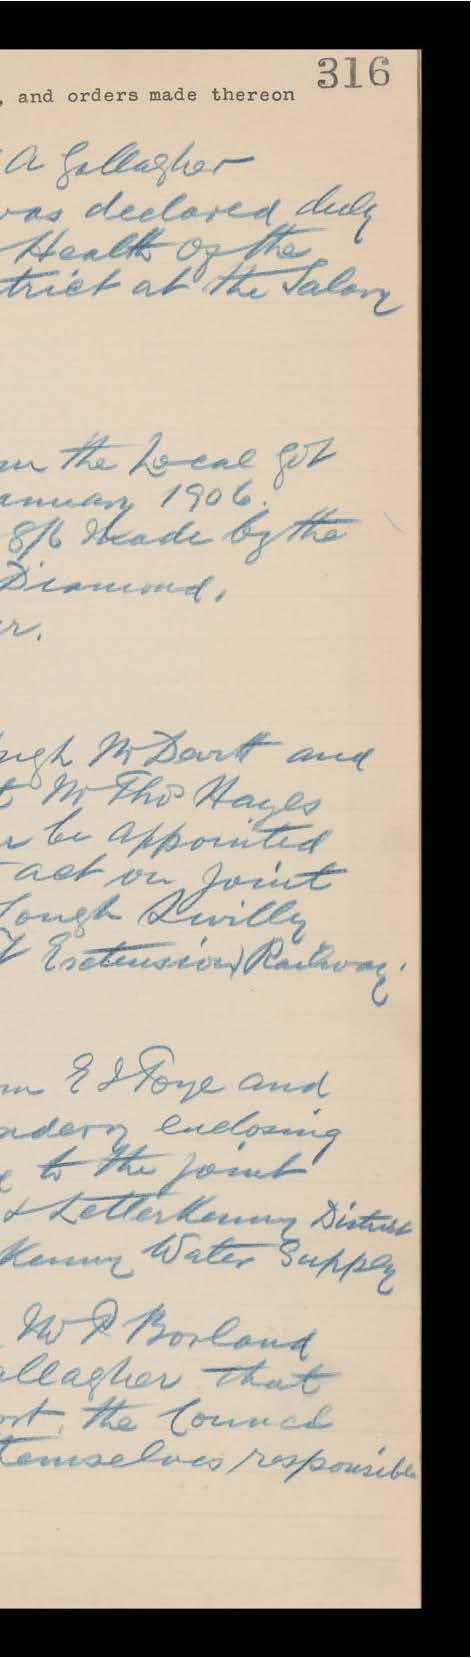 316
, and orders made thereon
A Gallagher
was declared duly
Health of the
trict at the Salary
m the Local Gov
anuary 1906.
8/6 made by the
Diamond.
r.
ugh McDevitt and
t Mr Thos Hayes
r be appointed
act on Joint
Lough Swilly
Extension) Railway.
m E I Foye and
enclosing
to the Joint
& Letterkenny District
Kenny Water Supply
Mr P Borland
allagher that
ort, the Council
temselves responsible